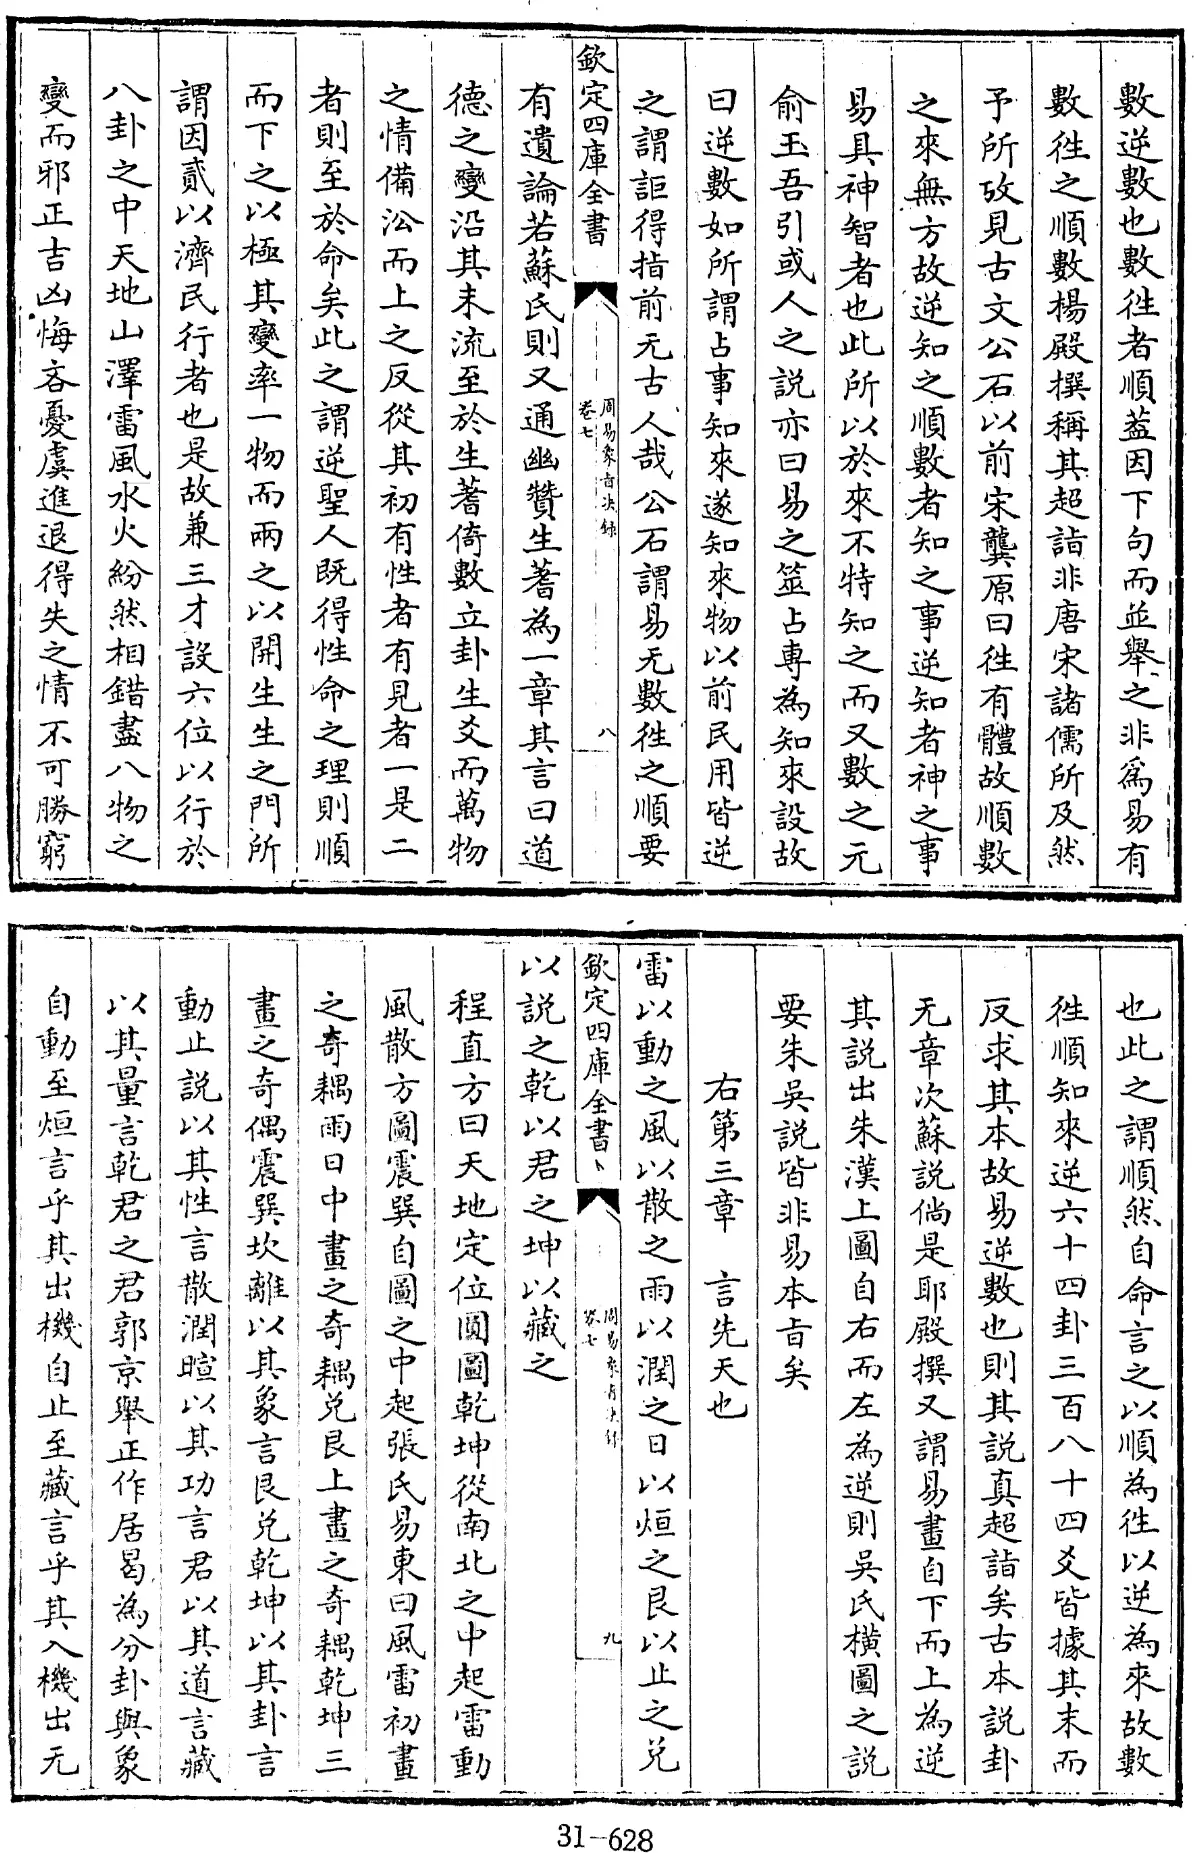 數逆數也數徃者順葢因下句而並舉之非爲易有
數徃之順數楊殿撰稱其超詣非唐宋諸儒所及然
予所攷見古文公石以前宋龔原曰徃有體故順數
之來無方故逆知之順數者知之事逆知者神之事
易具神智者也此所以於來不特知之而又數之元
俞玉吾引或人之説亦曰易之筮占專為知來設故
曰逆數如所謂占事知來遂知來物以前民用皆逆
之謂詎得指前无古人哉公石謂易无數徃之順要
欽定四庫全書
周易象旨决録
卷七
八
有遺論若蘇氏則又通幽贊生蓍為一章其言曰道
德之變沿其末流至於生蓍倚數立卦生爻而萬物
之情備㳂而上之反從其初有性者有見者一是二
者則至於命矣此之謂逆聖人既得性命之理則順
而下之以極其變率一物而兩之以開生生之門所
謂因貳以濟民行者也是故兼三才設六位以行於
八卦之中天地山澤雷風水火紛然相錯盡八物之
變而邪正吉凶悔吝憂虞進退得失之情不可勝窮
也此之謂順然自命言之以順為徃以逆為來故數
徃順知來逆六十四卦三百八十四爻皆據其末而
反求其本故易逆數也則其説真超詣矣古本説卦
无章次蘇説倘是耶殿撰又謂易畫自下而上為逆
其説出朱漢上圖自右而左為逆則吳氏橫圖之説
要朱吳説皆非易本旨矣
右第三章 言先天也
雷以動之風以散之雨以潤之日以烜之艮以止之兌
欽定四庫全書
周易象旨决録
卷七
九
以説之乾以君之坤以藏之
程直方曰天地定位圓圖乾坤從南北之中起雷動
風散方圖震巽自圖之中起張氏易東曰風雷初畫
之竒耦雨日中畫之奇耦兌艮上畫之奇耦乾坤三
畫之奇偶震巽坎離以其象言艮兌乾坤以其卦言
動止説以其性言散潤暄以其功言君以其道言藏
以其量言乾君之君郭京舉正作居曷為分卦與象
自動至烜言乎其出機自止至藏言乎其入機出无
31-628